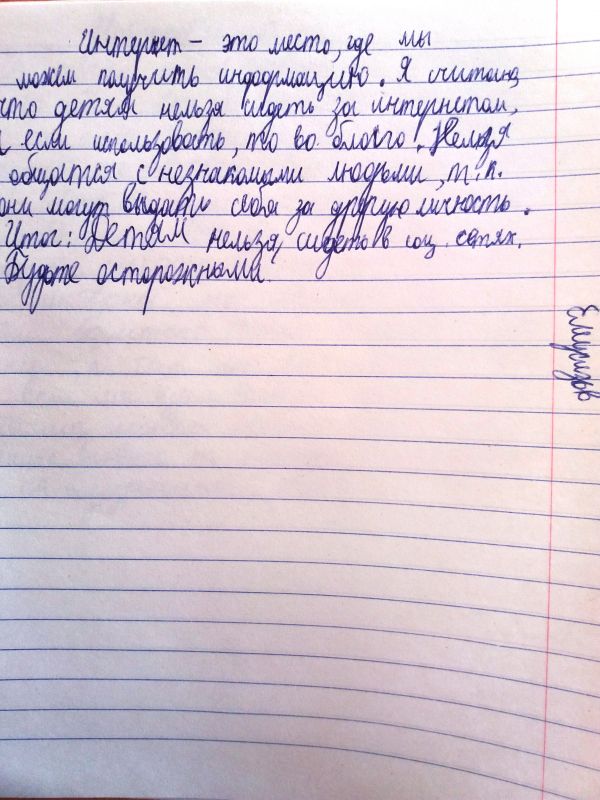 Интернет – это место, где мы
можем получить информацию. Я считаю,
что детям нельзя сидеть за интернетом,
а если использовать, то во благо. Нельзя
общатся с незнакомыми людьми, т.к.
они могут выдать себя за другую личность.
Итог: Детям нельзя, сидеть в соц. сетях.
Будьте осторожными